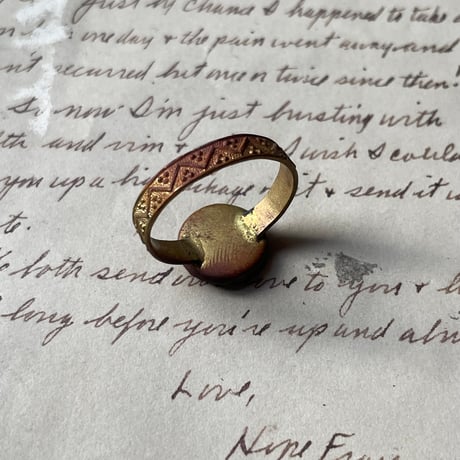 just by chance I happened to take
one day & the pain went away and
n't recurred but once or twice since then!
So now I'm just bursting with
lth and vim & I wish I could
you up a big package of it & send it
te.
both send our love to you & h
long before you're up and abou
Love,